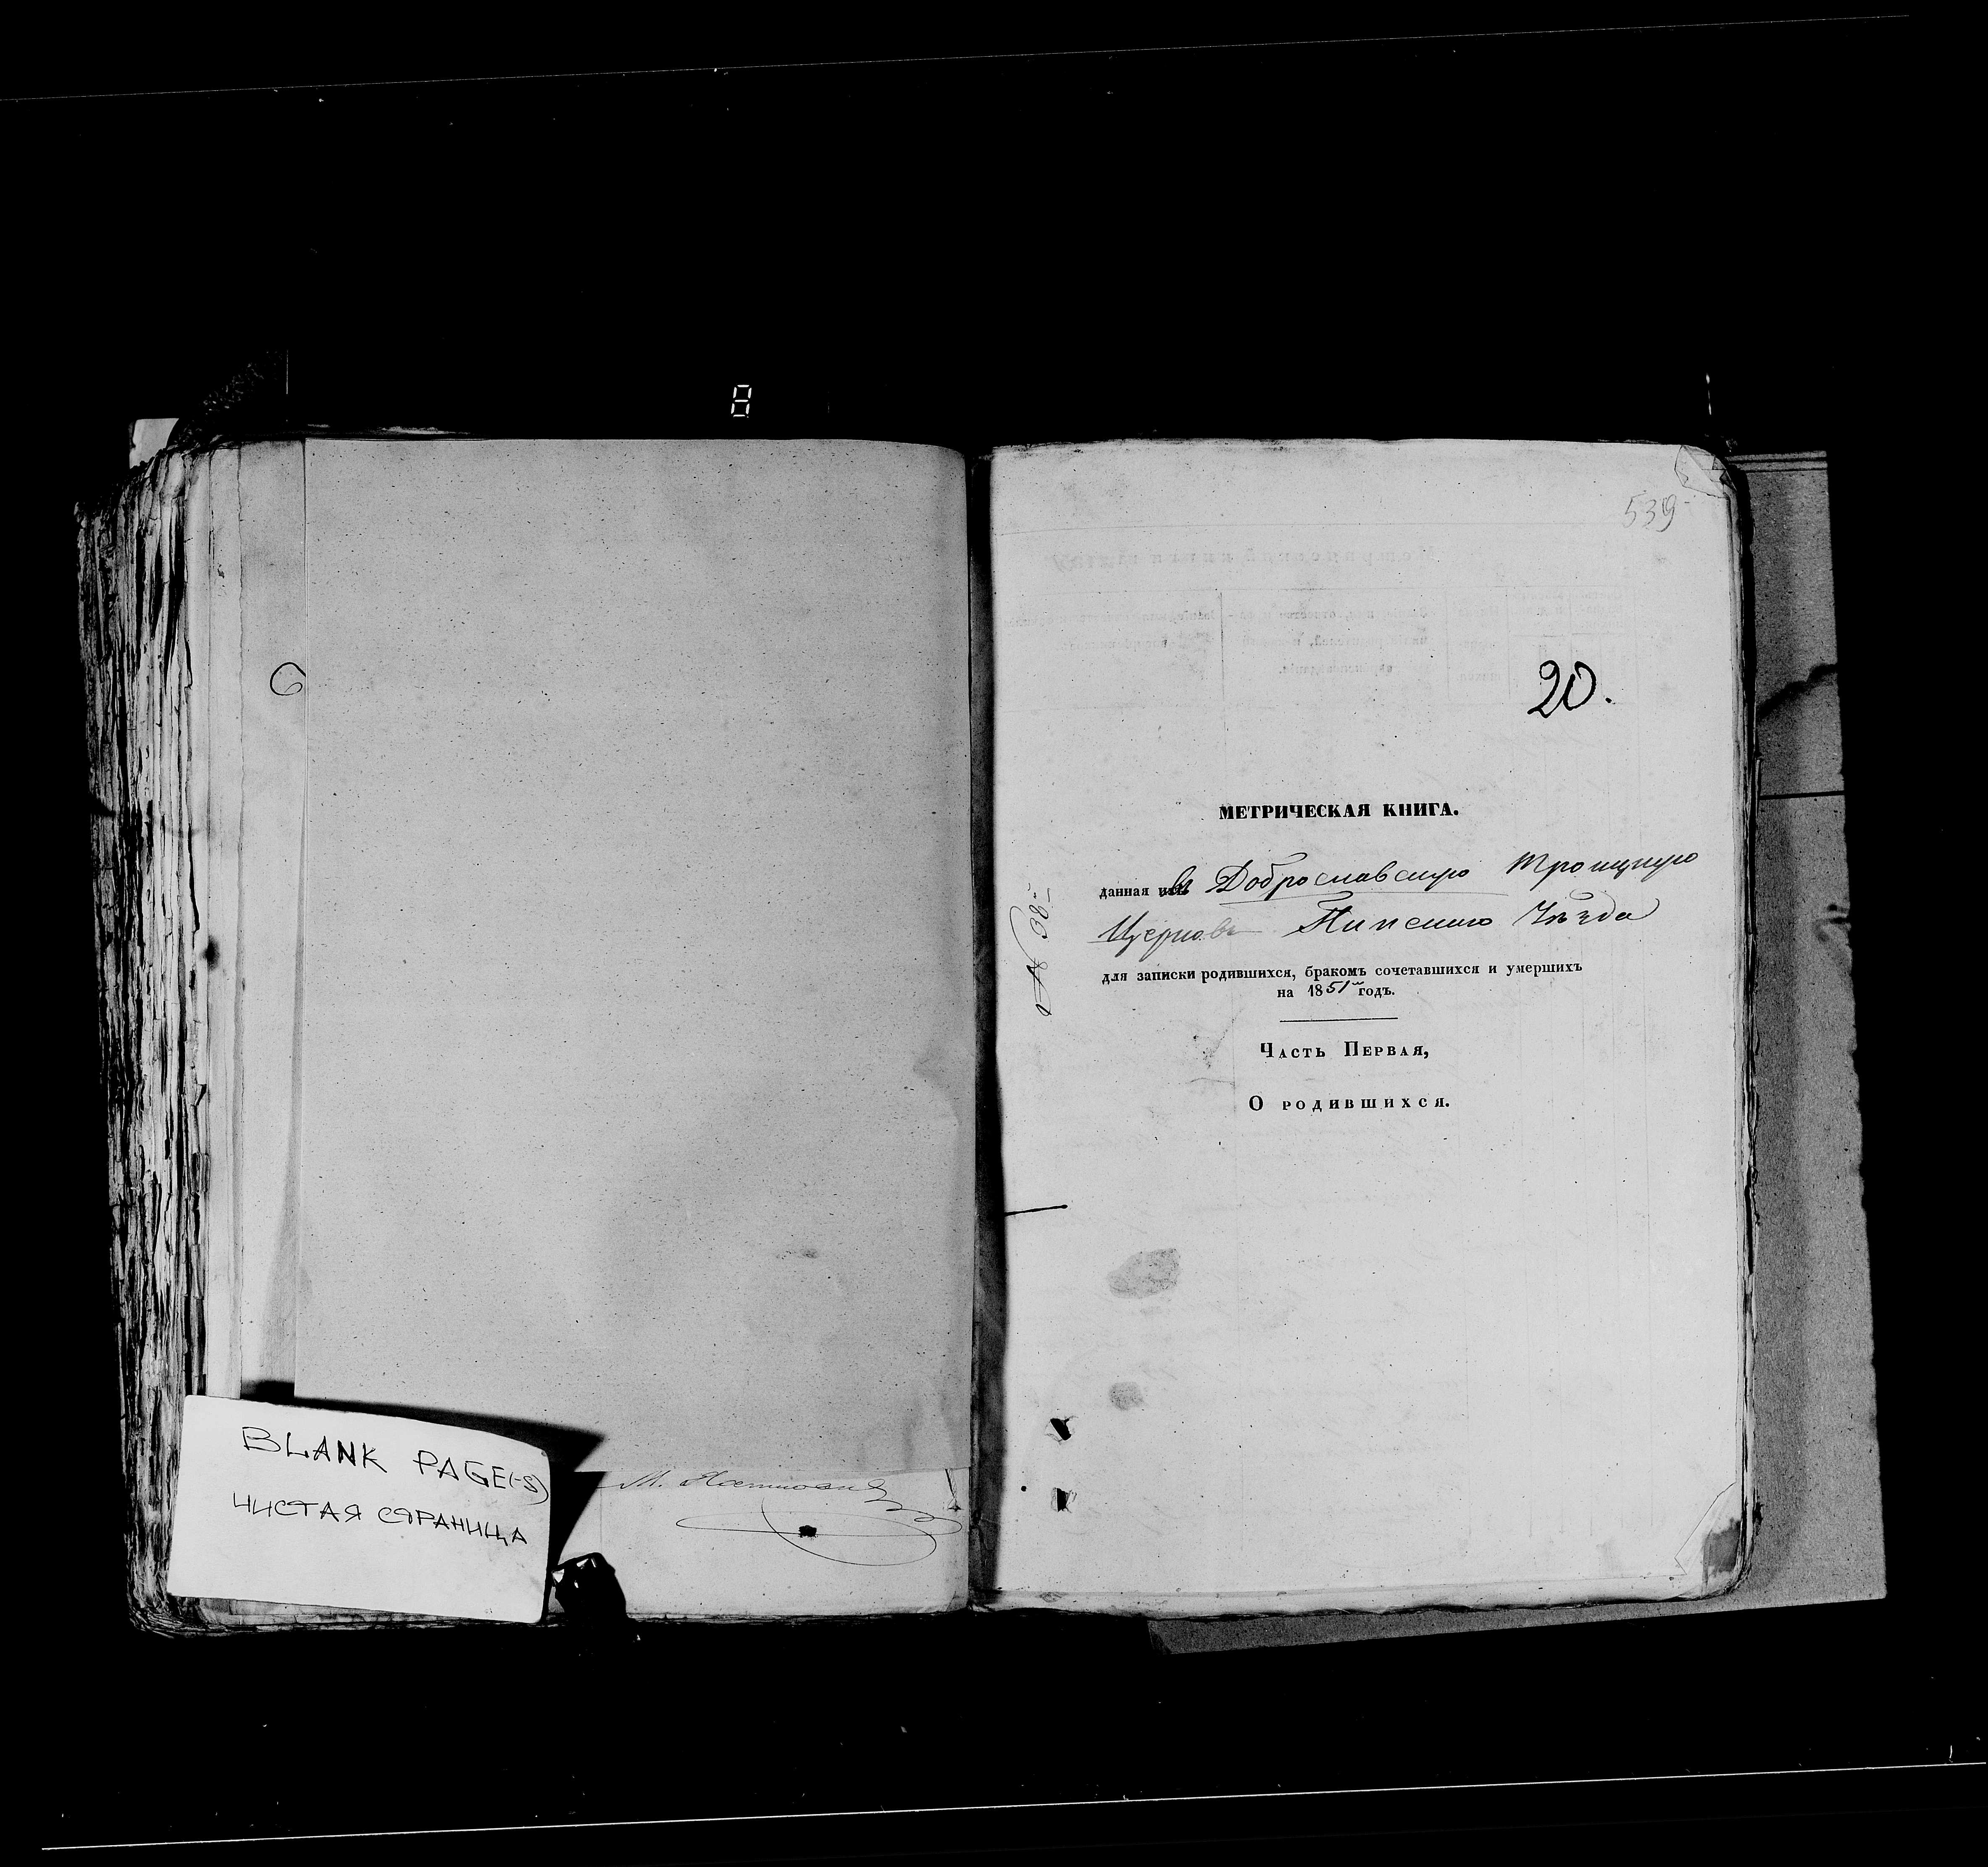 8
BLANK PAGE(-S)
ЧИСТАЯ СТРАНИЦА
М.
539
20.
МЕТРИЧЕСКАЯ КНИГА.
данная въ Доброславскую Троицкую
Церковь Пинскаго Уѣзда
для записки родившихся, бракомъ сочетавшихся и умершихъ
на 1851 годъ.
Часть Первая,
О родившихся.
№ 38